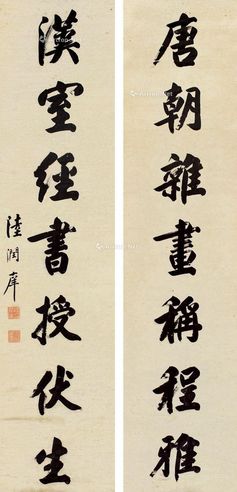 唐朝雜畫稱程雅
漢室經書授伏生
陸潤庠